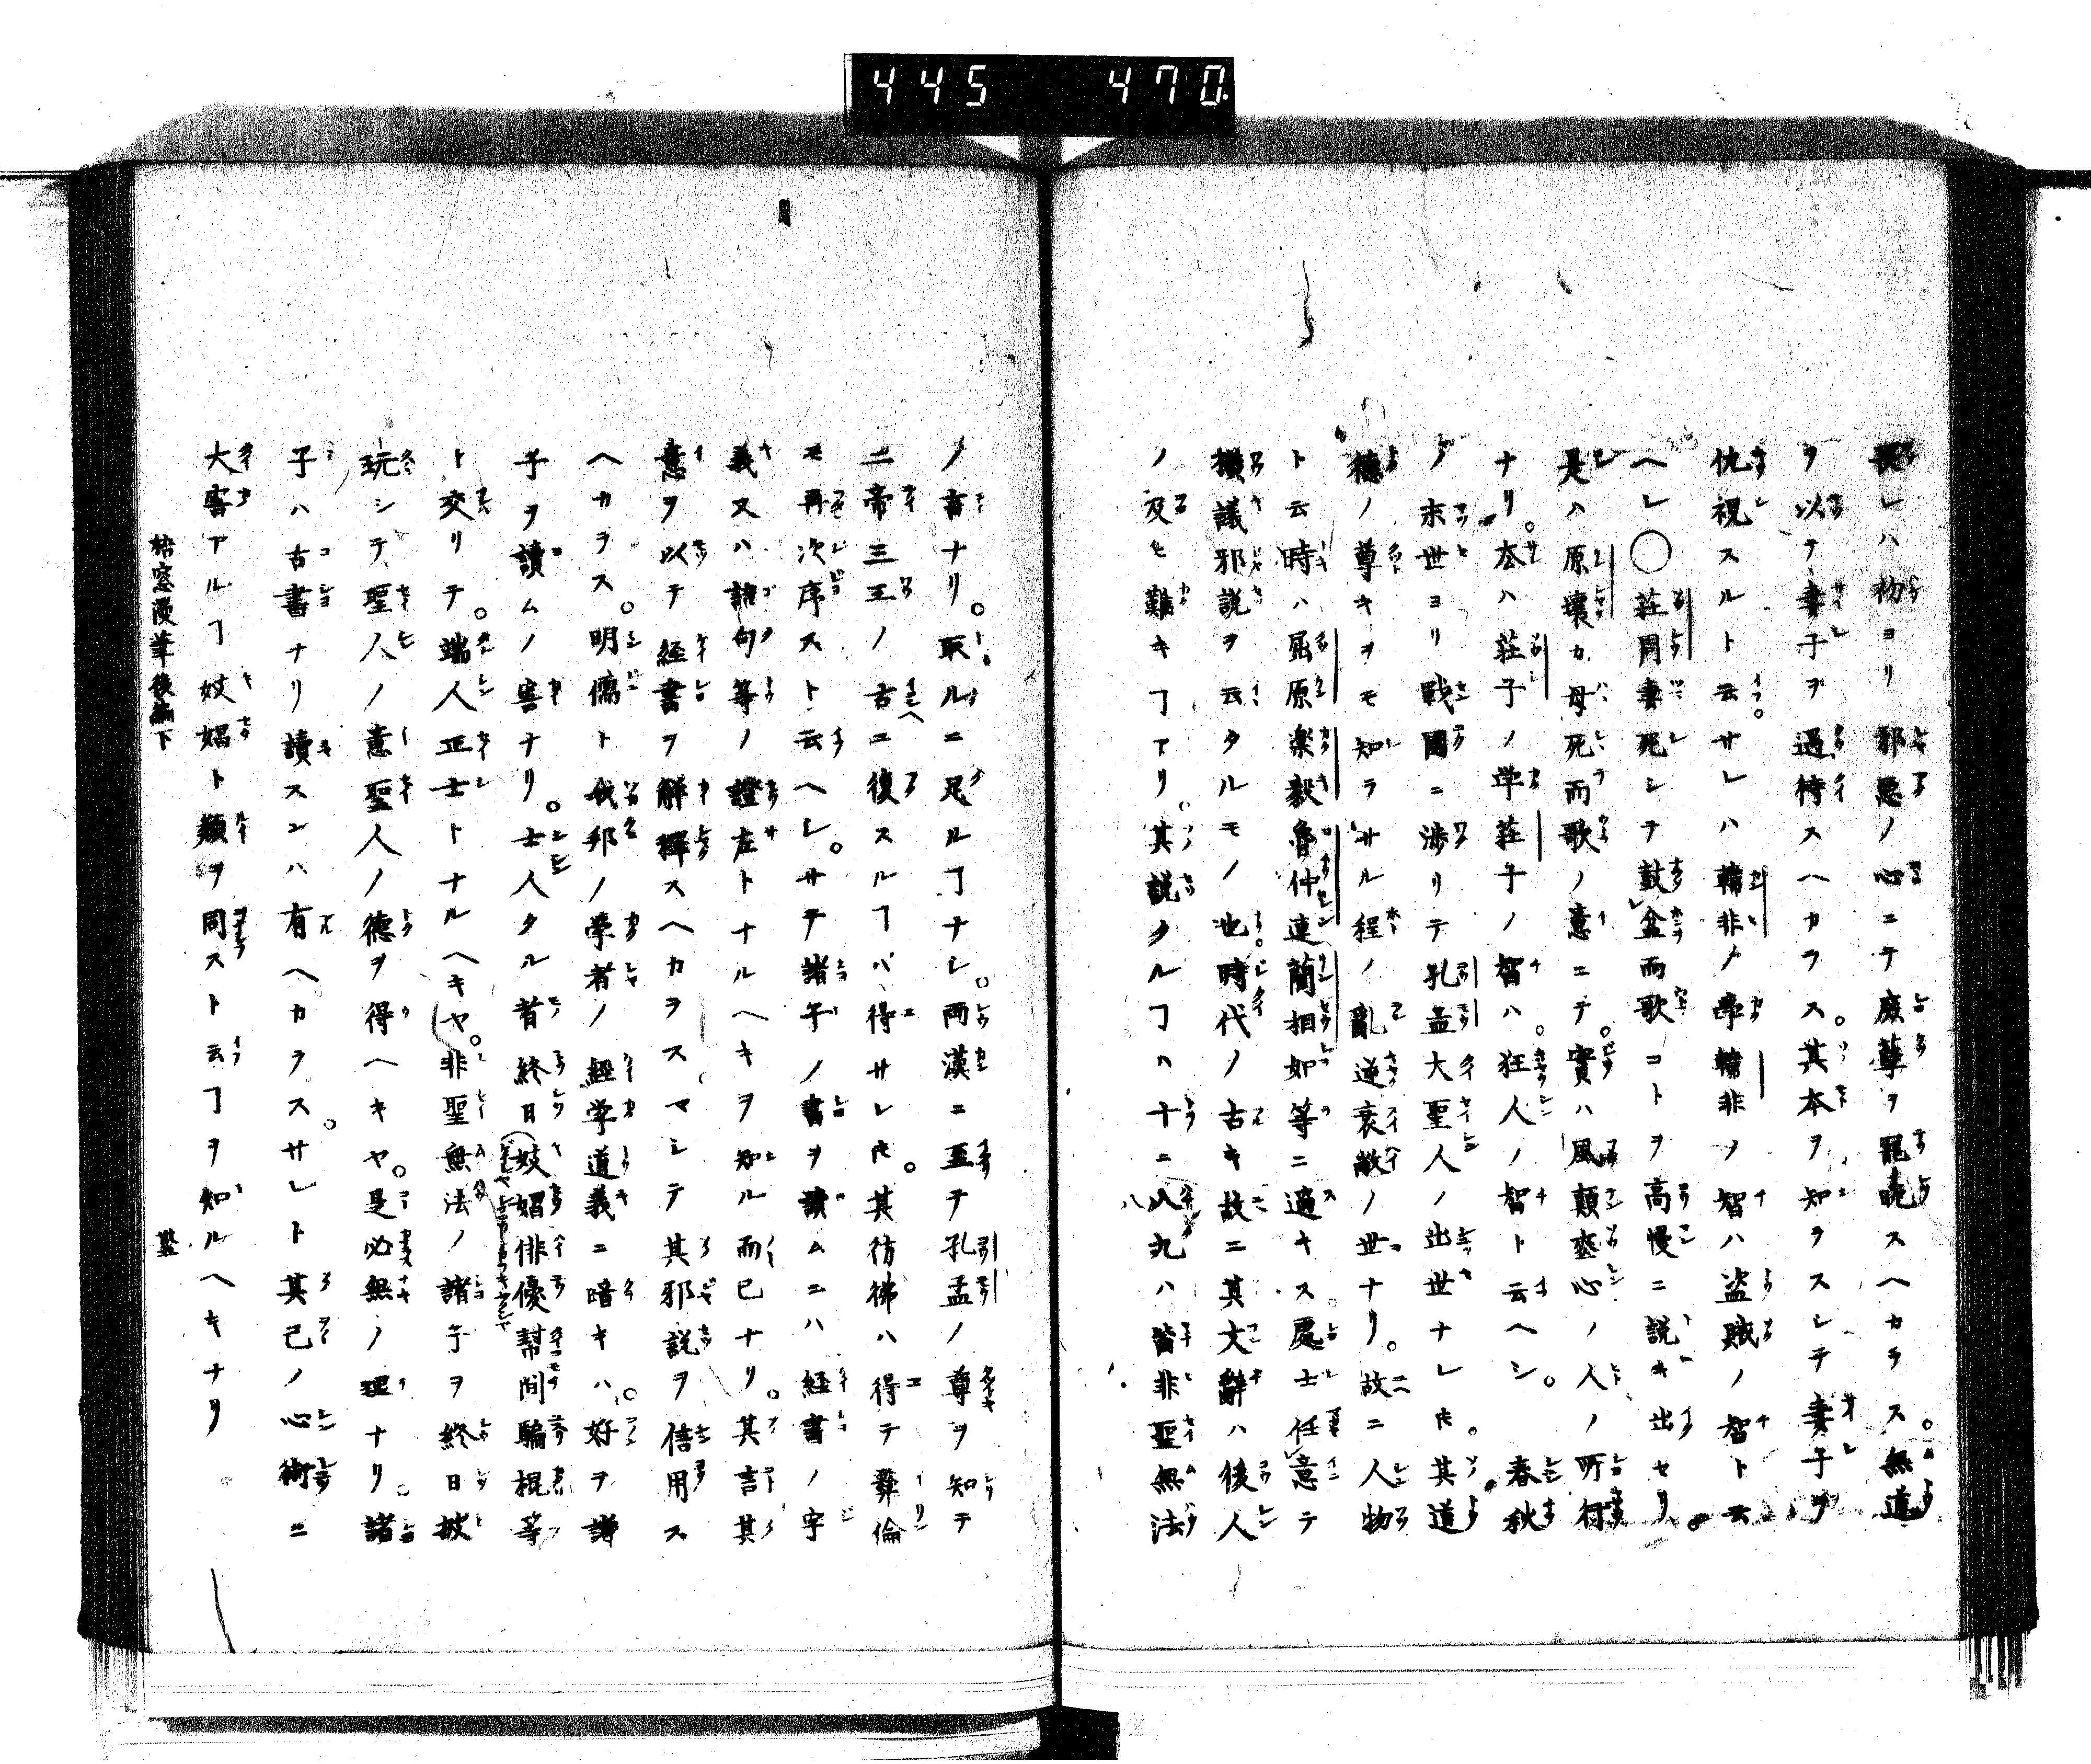 445 470
畏レハ初ヨリ邪悪ノ心ニテ庶孽ヲ寵昵スヘカラス。無道
ヲ以テ妻子ヲ遇待スヘカラス。其本ヲ知ラスシテ妻子ヲ
仇視スルト云。サレハ韓非ノ學韓非ノ智ハ盗賊ノ智ト云
ヘシ〇荘周妻死シテ鼓盆而歌コトヲ高慢ニ説キ出セリ
是ハ原壤カ母死而歌ノ意ニテ。實ハ風顛喪心ノ人ノ所行
ナリ。本ハ荘子ノ学荘子ノ智ハ。狂人ノ智ト云ヘシ。春秋
ノ末世ヨリ戦國ニ渉リテ孔孟大聖人ノ出世ナレ𪜈。其道
德ノ尊キヲモ知ラサル程ノ亂逆衰敝ノ世ナリ。故ニ人物
ト云時ハ屈原楽毅魯仲連藺相如等ニ過キス處士任意テ
横議邪説ヲ云タルモノ也。時代ノ古キ故ニ其文辭ハ後人
ノ及ヒ難キヿアリ。其説タルヿハ十ニ八九ハ皆非聖無法
ノ書ナリ。取ルニ足ルヿナシ。両漢ニ至テ孔孟ノ尊ヲ知テ
二帝三王ノ古ニ復スルヿハ得サレ𪜈。其彷彿ハ得テ彜倫
モ再次序スト云ヘシ。サテ諸子ノ書ヲ讀ムニハ経書ノ字
義又ハ諸句等ノ證左トナルヘキヲ知ル而已ナリ。其言其
意ヲ以テ経書ヲ解釋スヘカラスマシテ其邪説ヲ信用ス
ヘカラス。明儒ト我邦ノ學者ノ経学道義ニ暗キハ。好ヲ諸
子ヲ讀ムノ害ナリ。士人タル者終日妓娼俳優幇間騙棍等
ト交リテ。端人正士トナルヘキヤ。非聖無法ノ諸子ヲ終日披
玩シテ聖人ノ意聖人ノ德ヲ得ヘキヤ。是必無ノ理ナリ。諸
子ハ古書ナリ讀スンハ有ヘカラス。サレト其己ノ心術ニ
大害アルヿ妓娼ト類ヲ同スト云ヿヲ知ルヘキナリ
梧窓漫筆後編下